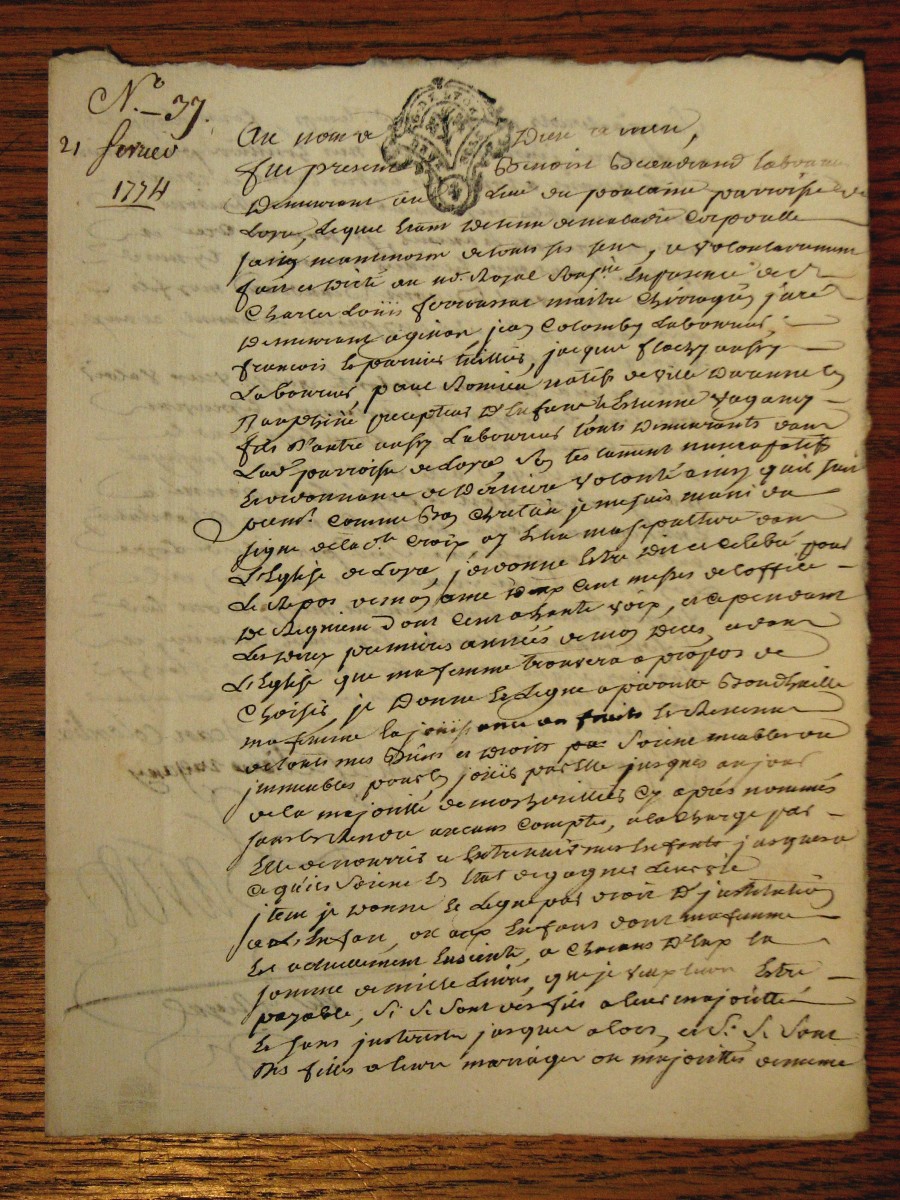 N.º 37.
21 fevrier
1774
Au nom de Dieu amen,
fut present Benoist laboureur
Demeurant au lieu du poulaine parroisse de
Loyre, lequel etant detenu de maladie corporelle
sain memoire de touts ses sens, a volontairement
fait et dicté au no.re Royal en presence de Sr
Charles Louis ferroussac maitre Chirurgien juré
Demeurant a jean Colomby Laboureur,
francois le parnier tuillier, jacques flachy aussy
Laboureur, paul Romieu natif de ville Daranne en
Dauphiné precepteur D'Enfans et Estienne Vaganay
fils D'autre aussy Laboureur touts Demeurants dans
Lad. parroisse de Loyre, son testament nuncupatif
et ordonnance de Derniere volonté ainsy qu'il suit
premt. comme bon Chretien je me suis muni du
signe de la ste. croix et Elu ma sepulture dans
L'Eglise de Loyre, j'ordonne Estre dit et celebré pour
Le Repos de mon ame cent messes de l'office
De Requiem dont cent a haute voix, et ce pendant
Les deux premieres années de mon deces, et dans
L'Eglise que ma femme trouvera a propos de
Choisir, je Donne et Legue a pierrette
ma femme la jouissance en fruits et Revenus
de touts mes Biens et Droits soient meubles ou
immeubles pour en jouir par Elle jusques au jour
de la majorité de mes heritiers cy aprés nommés
sans En Rendre aucuns comptes, a la charge par
Elle de nourrir et entretenir mes Enfants jusques a
ce qu'ils soient En Etat de gagner Leur vie
jtem je donne et Legue par droit D'institution
a L'Enfant, ou aux Enfans dont ma femme
Est actuellement Enceinte, a chacun D'Eux la
somme de mille Livres, que je veux leur Estre
payable, si se sont des fils a leur majorité
et sans interets jusques alors, et si se sont
Des filles a leurs mariages ou majorités de meme